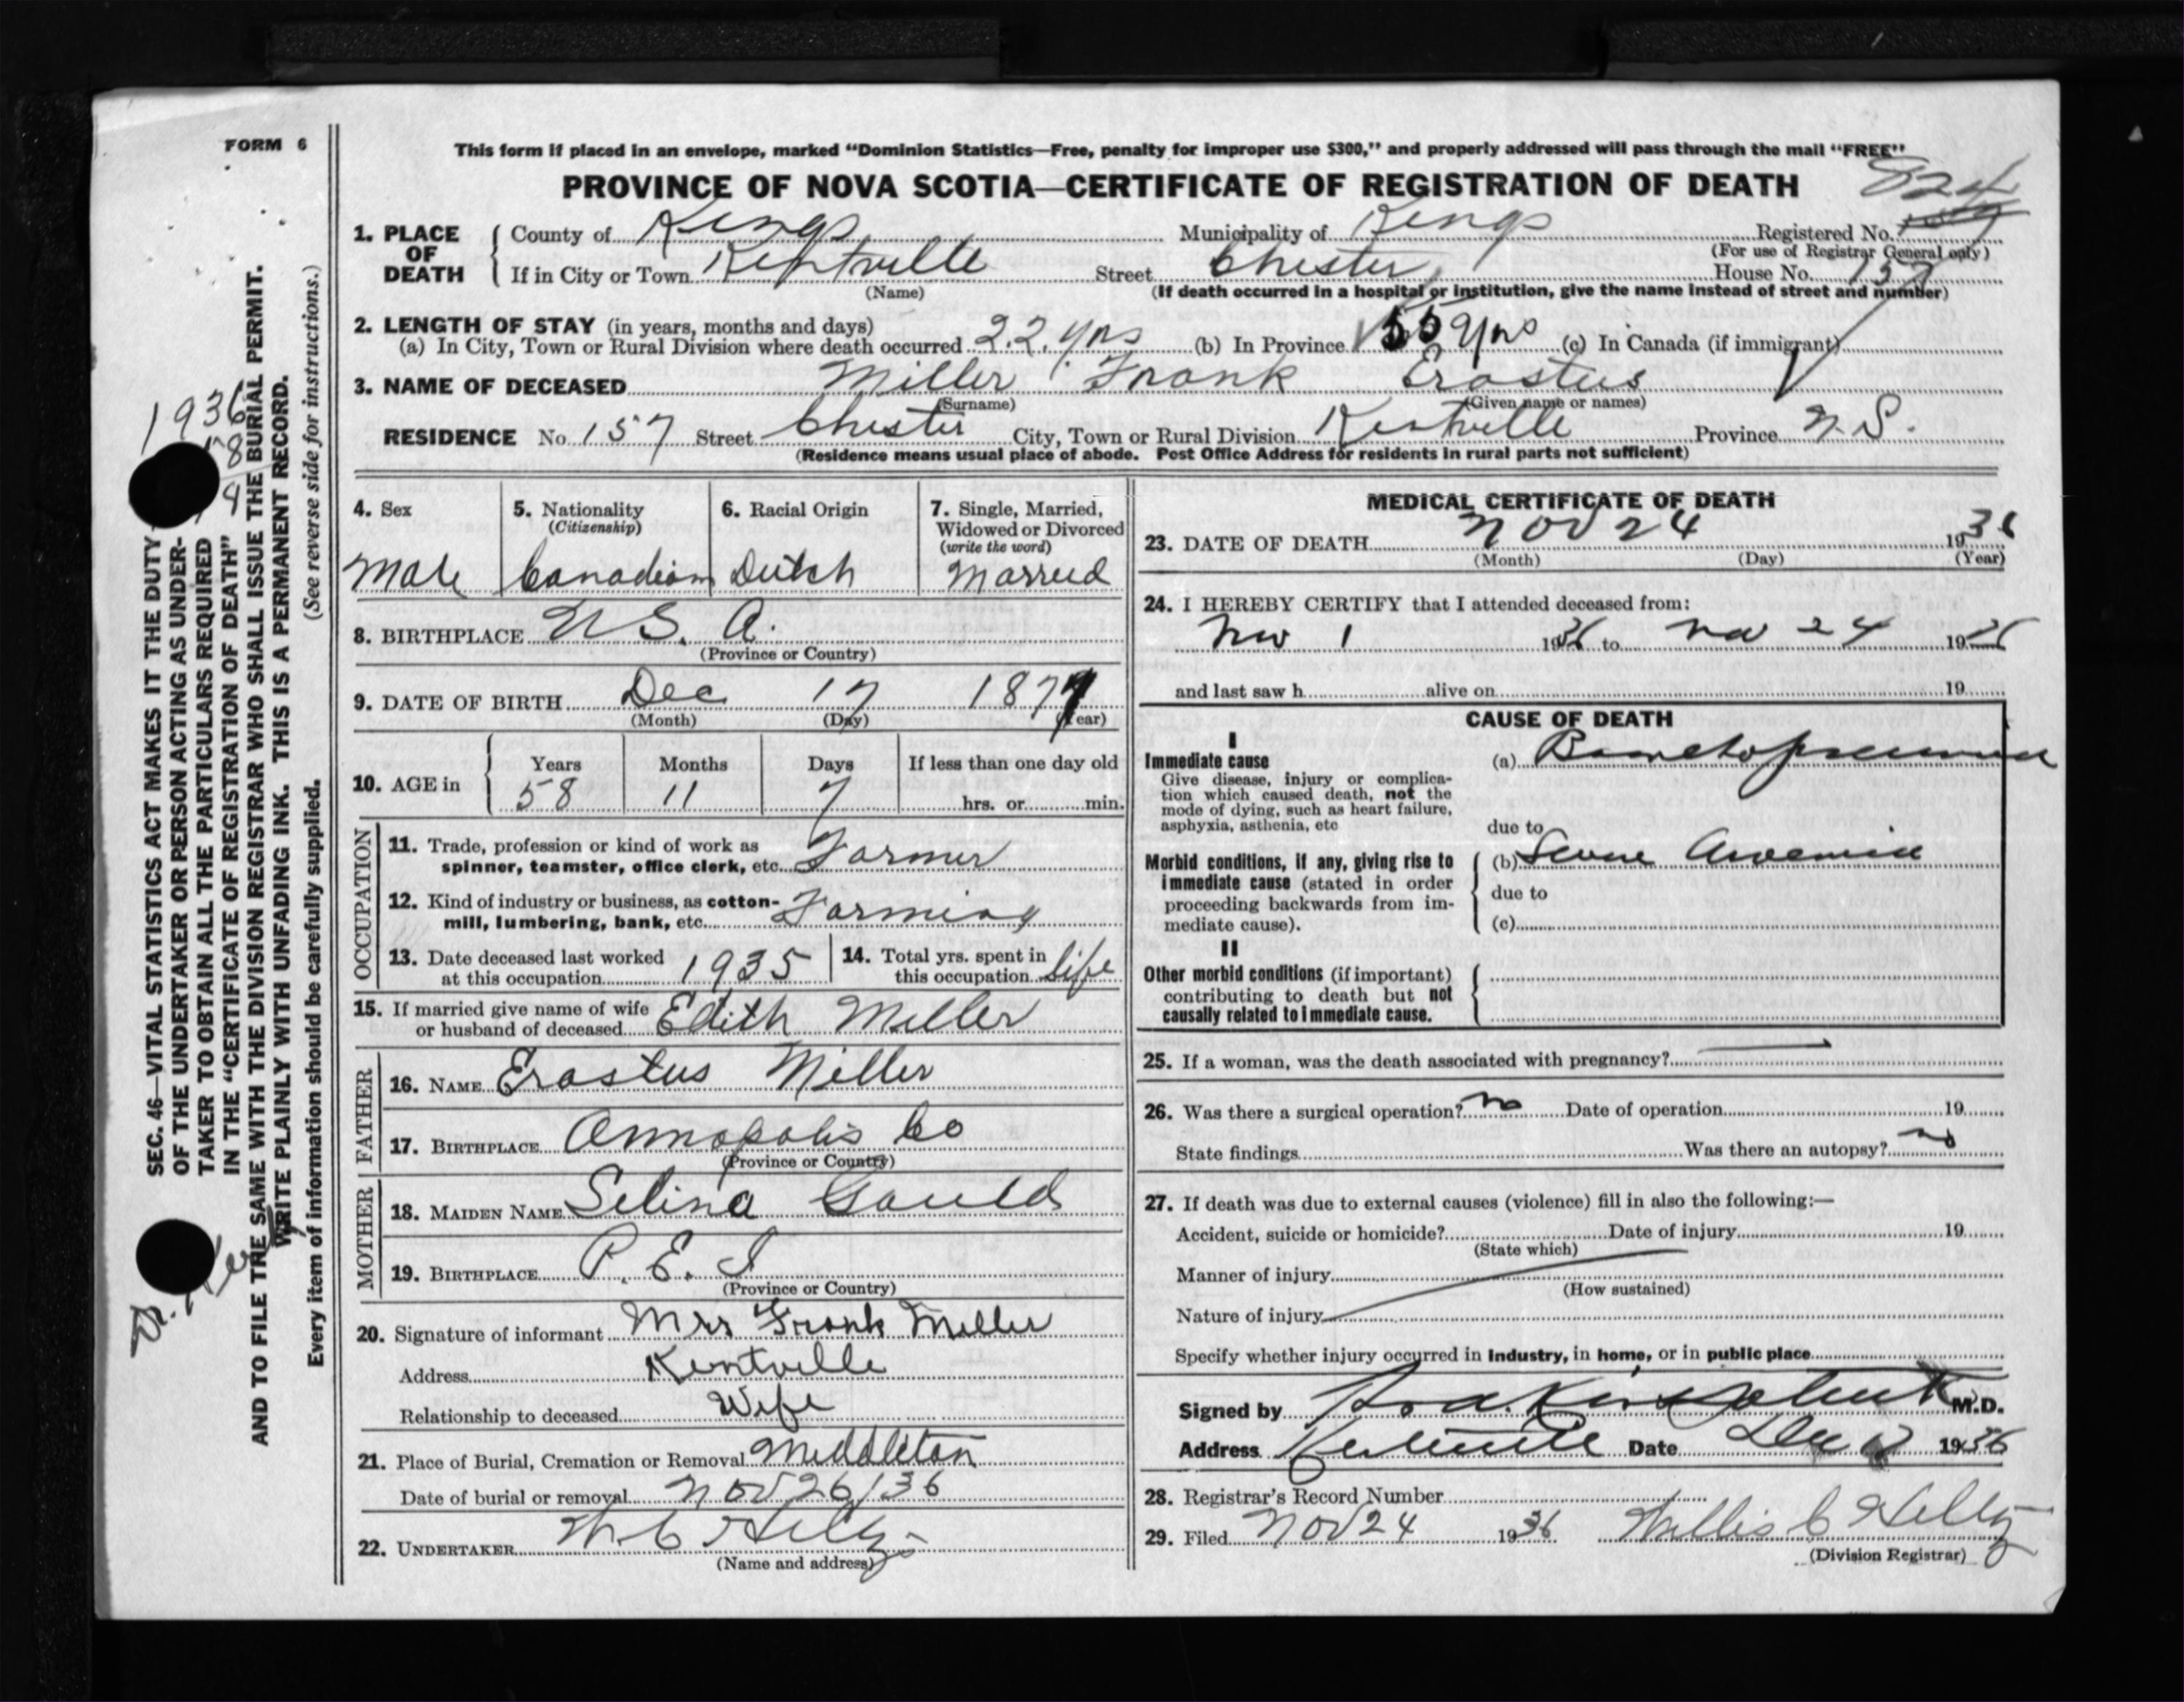 FORM 6
This form if placed in an envelope, marked “Dominion Statistics—Free, penalty for improper use $300,” and properly addressed will pass through the mail “FREE”
PROVINCE OF NOVA SCOTIA—CERTIFICATE OF REGISTRATION OF DEATH
824
1. PLACE OF DEATH { County of Kings Municipality of Kings Registered No.
(For use of Registrar General only)
If in City or Town Kentville Street Chester House No. 157
(Name) (If death occurred in a hospital or institution, give the name instead of street and number)
2. LENGTH OF STAY (in years, months and days)
(a) In City, Town or Rural Division where death occurred 22 yrs (b) In Province 55 yrs (c) In Canada (if immigrant)
3. NAME OF DECEASED Miller Frank Erastus
(Surname) (Given name or names)
RESIDENCE No. 157 Street Chester City, Town or Rural Division Kentville Province N.S.
(Residence means usual place of abode. Post Office Address for residents in rural parts not sufficient)
4. Sex
Male
5. Nationality
(Citizenship)
Canadian
6. Racial Origin
Dutch
7. Single, Married,
Widowed or Divorced
(write the word)
Married
8. BIRTHPLACE U S. A.
(Province or Country)
9. DATE OF BIRTH Dec 17 1877
(Month) (Day) (Year)
10. AGE in { Years Months Days If less than one day old
58 11 7 hrs. or min.
OCCUPATION
11. Trade, profession or kind of work as
spinner, teamster, office clerk, etc. Farmer
12. Kind of industry or business, as cotton-
mill, lumbering, bank, etc. Farming
13. Date deceased last worked
at this occupation 1935
14. Total yrs. spent in
this occupation life
15. If married give name of wife
or husband of deceased Edith Miller
FATHER
16. NAME Erastus Miller
17. BIRTHPLACE Annapolis Co
(Province or Country)
MOTHER
18. MAIDEN NAME Selina Gould
19. BIRTHPLACE P. E. I
(Province or Country)
20. Signature of informant Mrs Frank Miller
Address Kentville
Relationship to deceased Wife
21. Place of Burial, Cremation or Removal Middleton
Date of burial or removal Nov 26/36
22. UNDERTAKER W C
(Name and address)
MEDICAL CERTIFICATE OF DEATH
23. DATE OF DEATH Nov 24 1936
(Month) (Day) (Year)
24. I HEREBY CERTIFY that I attended deceased from:
Nov 1 1936 to Nov 24 1936
and last saw h alive on 19
CAUSE OF DEATH
I
Immediate cause
Give disease, injury or complica-
tion which caused death, not the
mode of dying, such as heart failure,
asphyxia, asthenia, etc
(a) Bronchopneumonia
due to
Morbid conditions, if any, giving rise to
immediate cause (stated in order
proceeding backwards from im-
mediate cause).
(b) Severe Anaemia
due to
(c)
II
Other morbid conditions (if important)
contributing to death but not
causally related to immediate cause.
25. If a woman, was the death associated with pregnancy?
26. Was there a surgical operation? no Date of operation 19
State findings Was there an autopsy? no
27. If death was due to external causes (violence) fill in also the following:—
Accident, suicide or homicide? Date of injury 19
(State which)
Manner of injury
(How sustained)
Nature of injury
Specify whether injury occurred in Industry, in home, or in public place
Signed by M.D.
Address Kentville Date Dec 1936
28. Registrar's Record Number
29. Filed Nov 24 1936 Willis C
(Division Registrar)
SEC. 46—VITAL STATISTICS ACT MAKES IT THE DUTY
OF THE UNDERTAKER OR PERSON ACTING AS UNDER-
TAKER TO OBTAIN ALL THE PARTICULARS REQUIRED
IN THE “CERTIFICATE OF REGISTRATION OF DEATH”
AND TO FILE THE SAME WITH THE DIVISION REGISTRAR WHO SHALL ISSUE THE BURIAL PERMIT.
WRITE PLAINLY WITH UNFADING INK. THIS IS A PERMANENT RECORD.
Every item of information should be carefully supplied. (See reverse side for instructions.)
1936